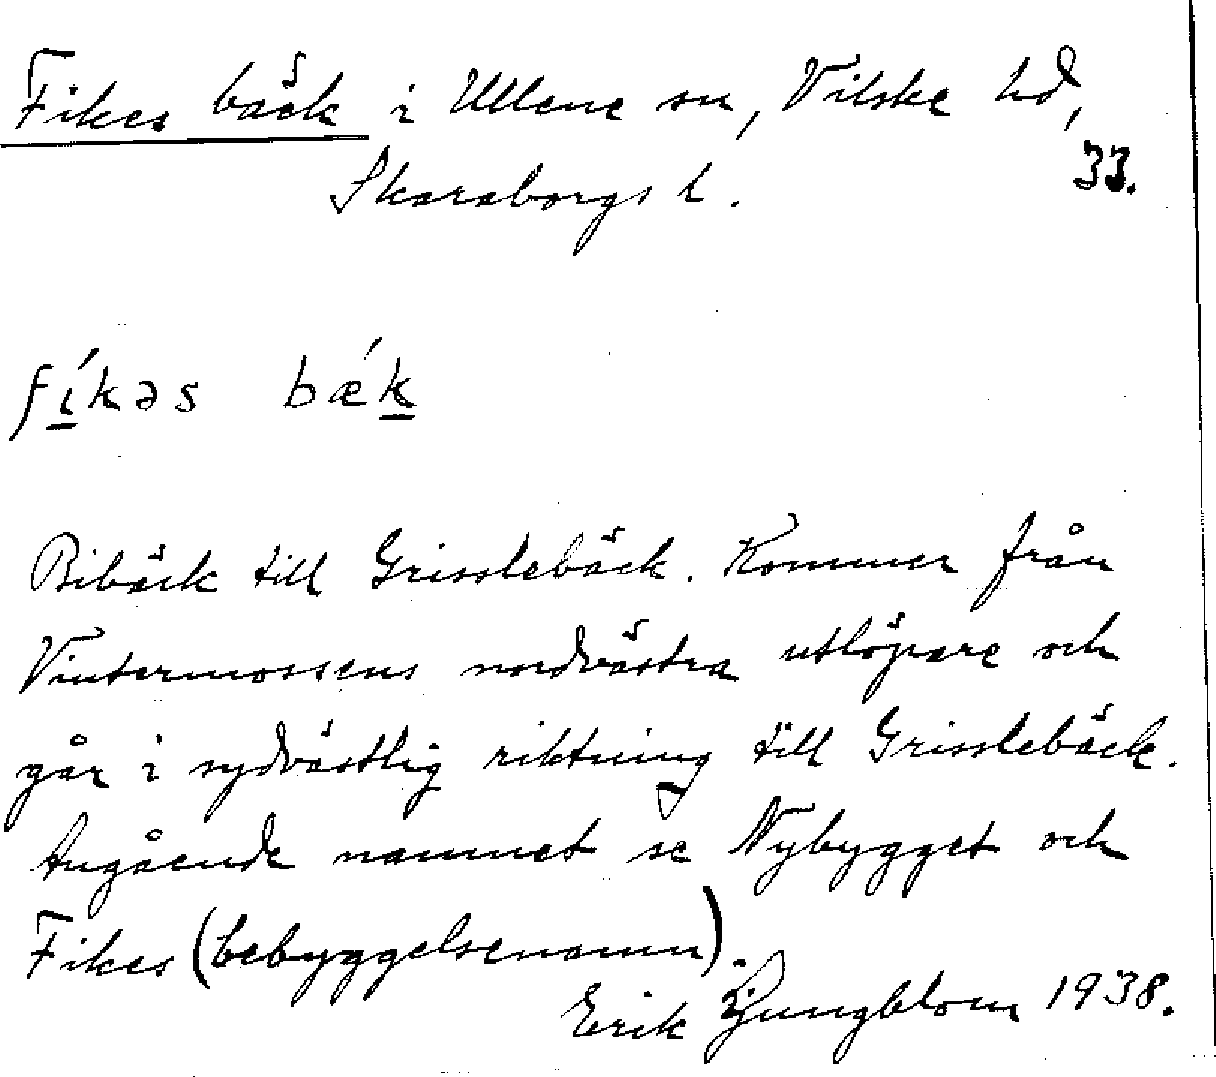 Fikes bäck i Ullene sn, Vilske hd,
33.
Skaraborgs l.
fíkəs bǽk
Bibäck till Grisslebäck. Kommer från
Vintermossens nordvästra utlöpare och
går i sydvästlig riktning till Grisslebäck.
Angående namnet se Nybygget och
Fikes (bebyggelsenamn).
Erik Ljungblom 1938.